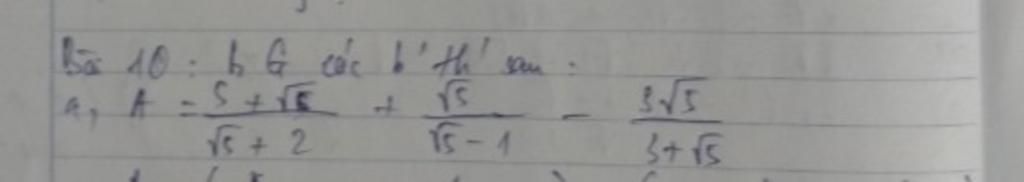 Bài 10: b G các b' th' sau:
a, A = \frac{5+\sqrt{5}}{\sqrt{5}+2} + \frac{\sqrt{5}}{\sqrt{5}-1} - \frac{3\sqrt{5}}{3+\sqrt{5}}